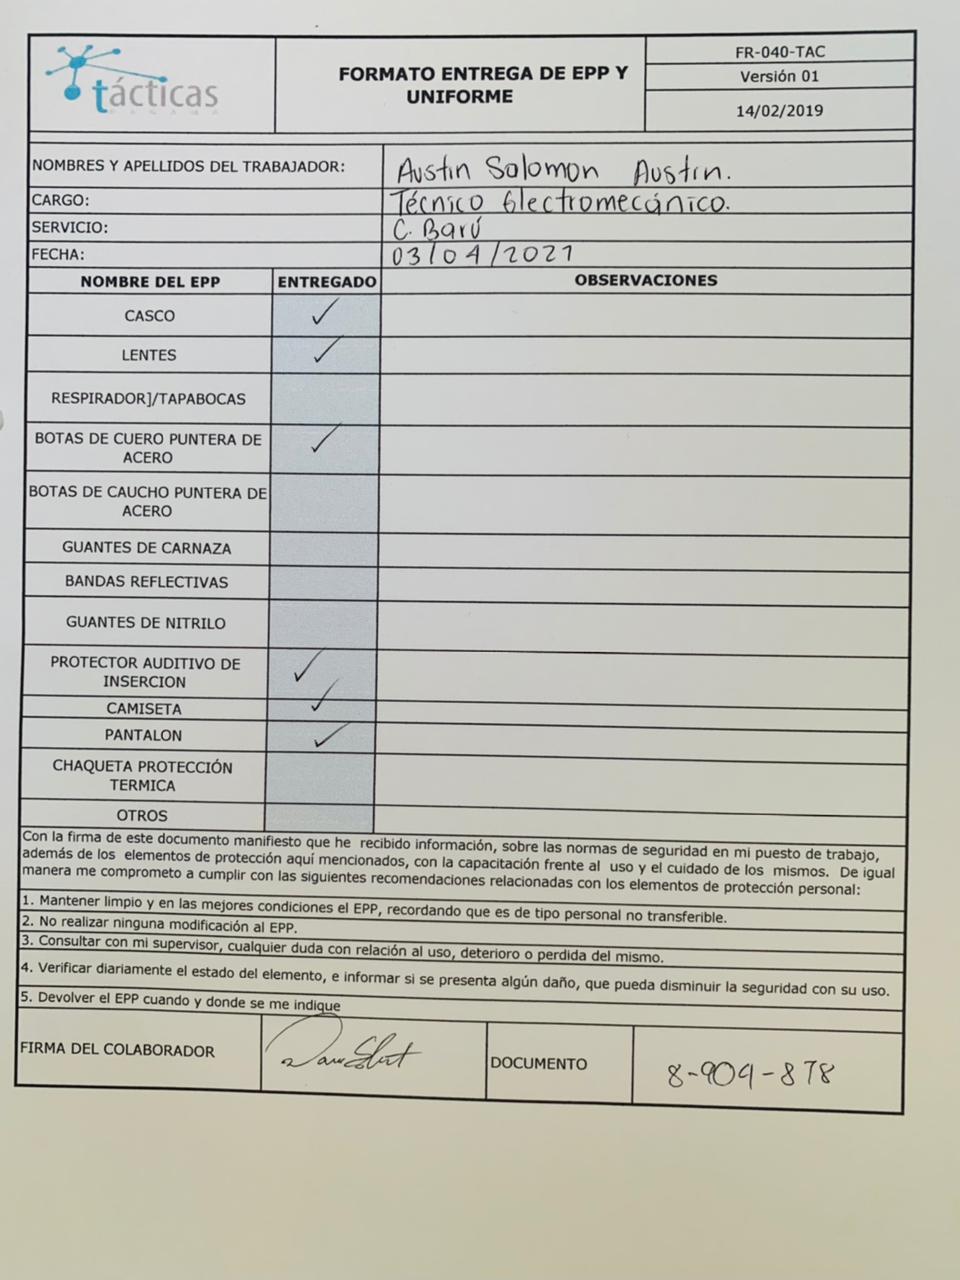 tácticas
PANAMA
FORMATO ENTREGA DE EPP Y
UNIFORME
FR-040-TAC
Versión 01
14/02/2019
NOMBRES Y APELLIDOS DEL TRABAJADOR: Austin Solomon Austin.
CARGO: Técnico Electromecánico.
SERVICIO: C. Barú
FECHA: 03/04/2021
NOMBRE DEL EPP ENTREGADO OBSERVACIONES
CASCO ✓
LENTES ✓
RESPIRADOR]/TAPABOCAS
BOTAS DE CUERO PUNTERA DE
ACERO ✓
BOTAS DE CAUCHO PUNTERA DE
ACERO
GUANTES DE CARNAZA
BANDAS REFLECTIVAS
GUANTES DE NITRILO
PROTECTOR AUDITIVO DE
INSERCION ✓
CAMISETA ✓
PANTALON ✓
CHAQUETA PROTECCIÓN
TERMICA
OTROS
Con la firma de este documento manifiesto que he recibido información, sobre las normas de seguridad en mi puesto de trabajo,
además de los elementos de protección aquí mencionados, con la capacitación frente al uso y el cuidado de los mismos. De igual
manera me comprometo a cumplir con las siguientes recomendaciones relacionadas con los elementos de protección personal:
1. Mantener limpio y en las mejores condiciones el EPP, recordando que es de tipo personal no transferible.
2. No realizar ninguna modificación al EPP.
3. Consultar con mi supervisor, cualquier duda con relación al uso, deterioro o perdida del mismo.
4. Verificar diariamente el estado del elemento, e informar si se presenta algún daño, que pueda disminuir la seguridad con su uso.
5. Devolver el EPP cuando y donde se me indique
FIRMA DEL COLABORADOR
DOCUMENTO 8-904-878